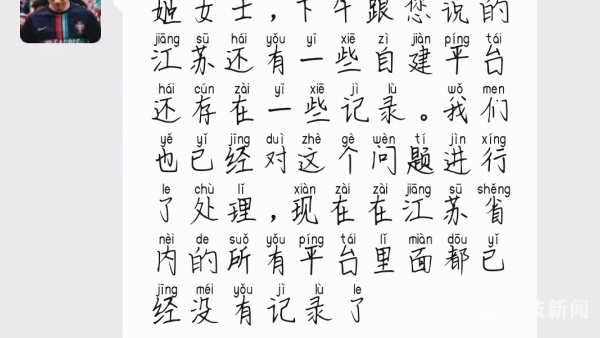 姬女士，下午跟您说的
jiāng sū hái yǒu yī xiē zì jiàn píng tái
江苏还有一些自建平台
hái cún zài yī xiē jì lù wǒ men
还存在一些记录。我们
yě yǐ jīng duì zhè gè wèn tí jìn xíng
也已经对这个问题进行
le chù lǐ xiàn zài zài jiāng sū shěng
了处理，现在在江苏省
nèi de suǒ yǒu píng tái lǐ miàn dōu yǐ
内的所有平台里面都已
jīng méi yǒu jì lù le
经没有记录了
新闻